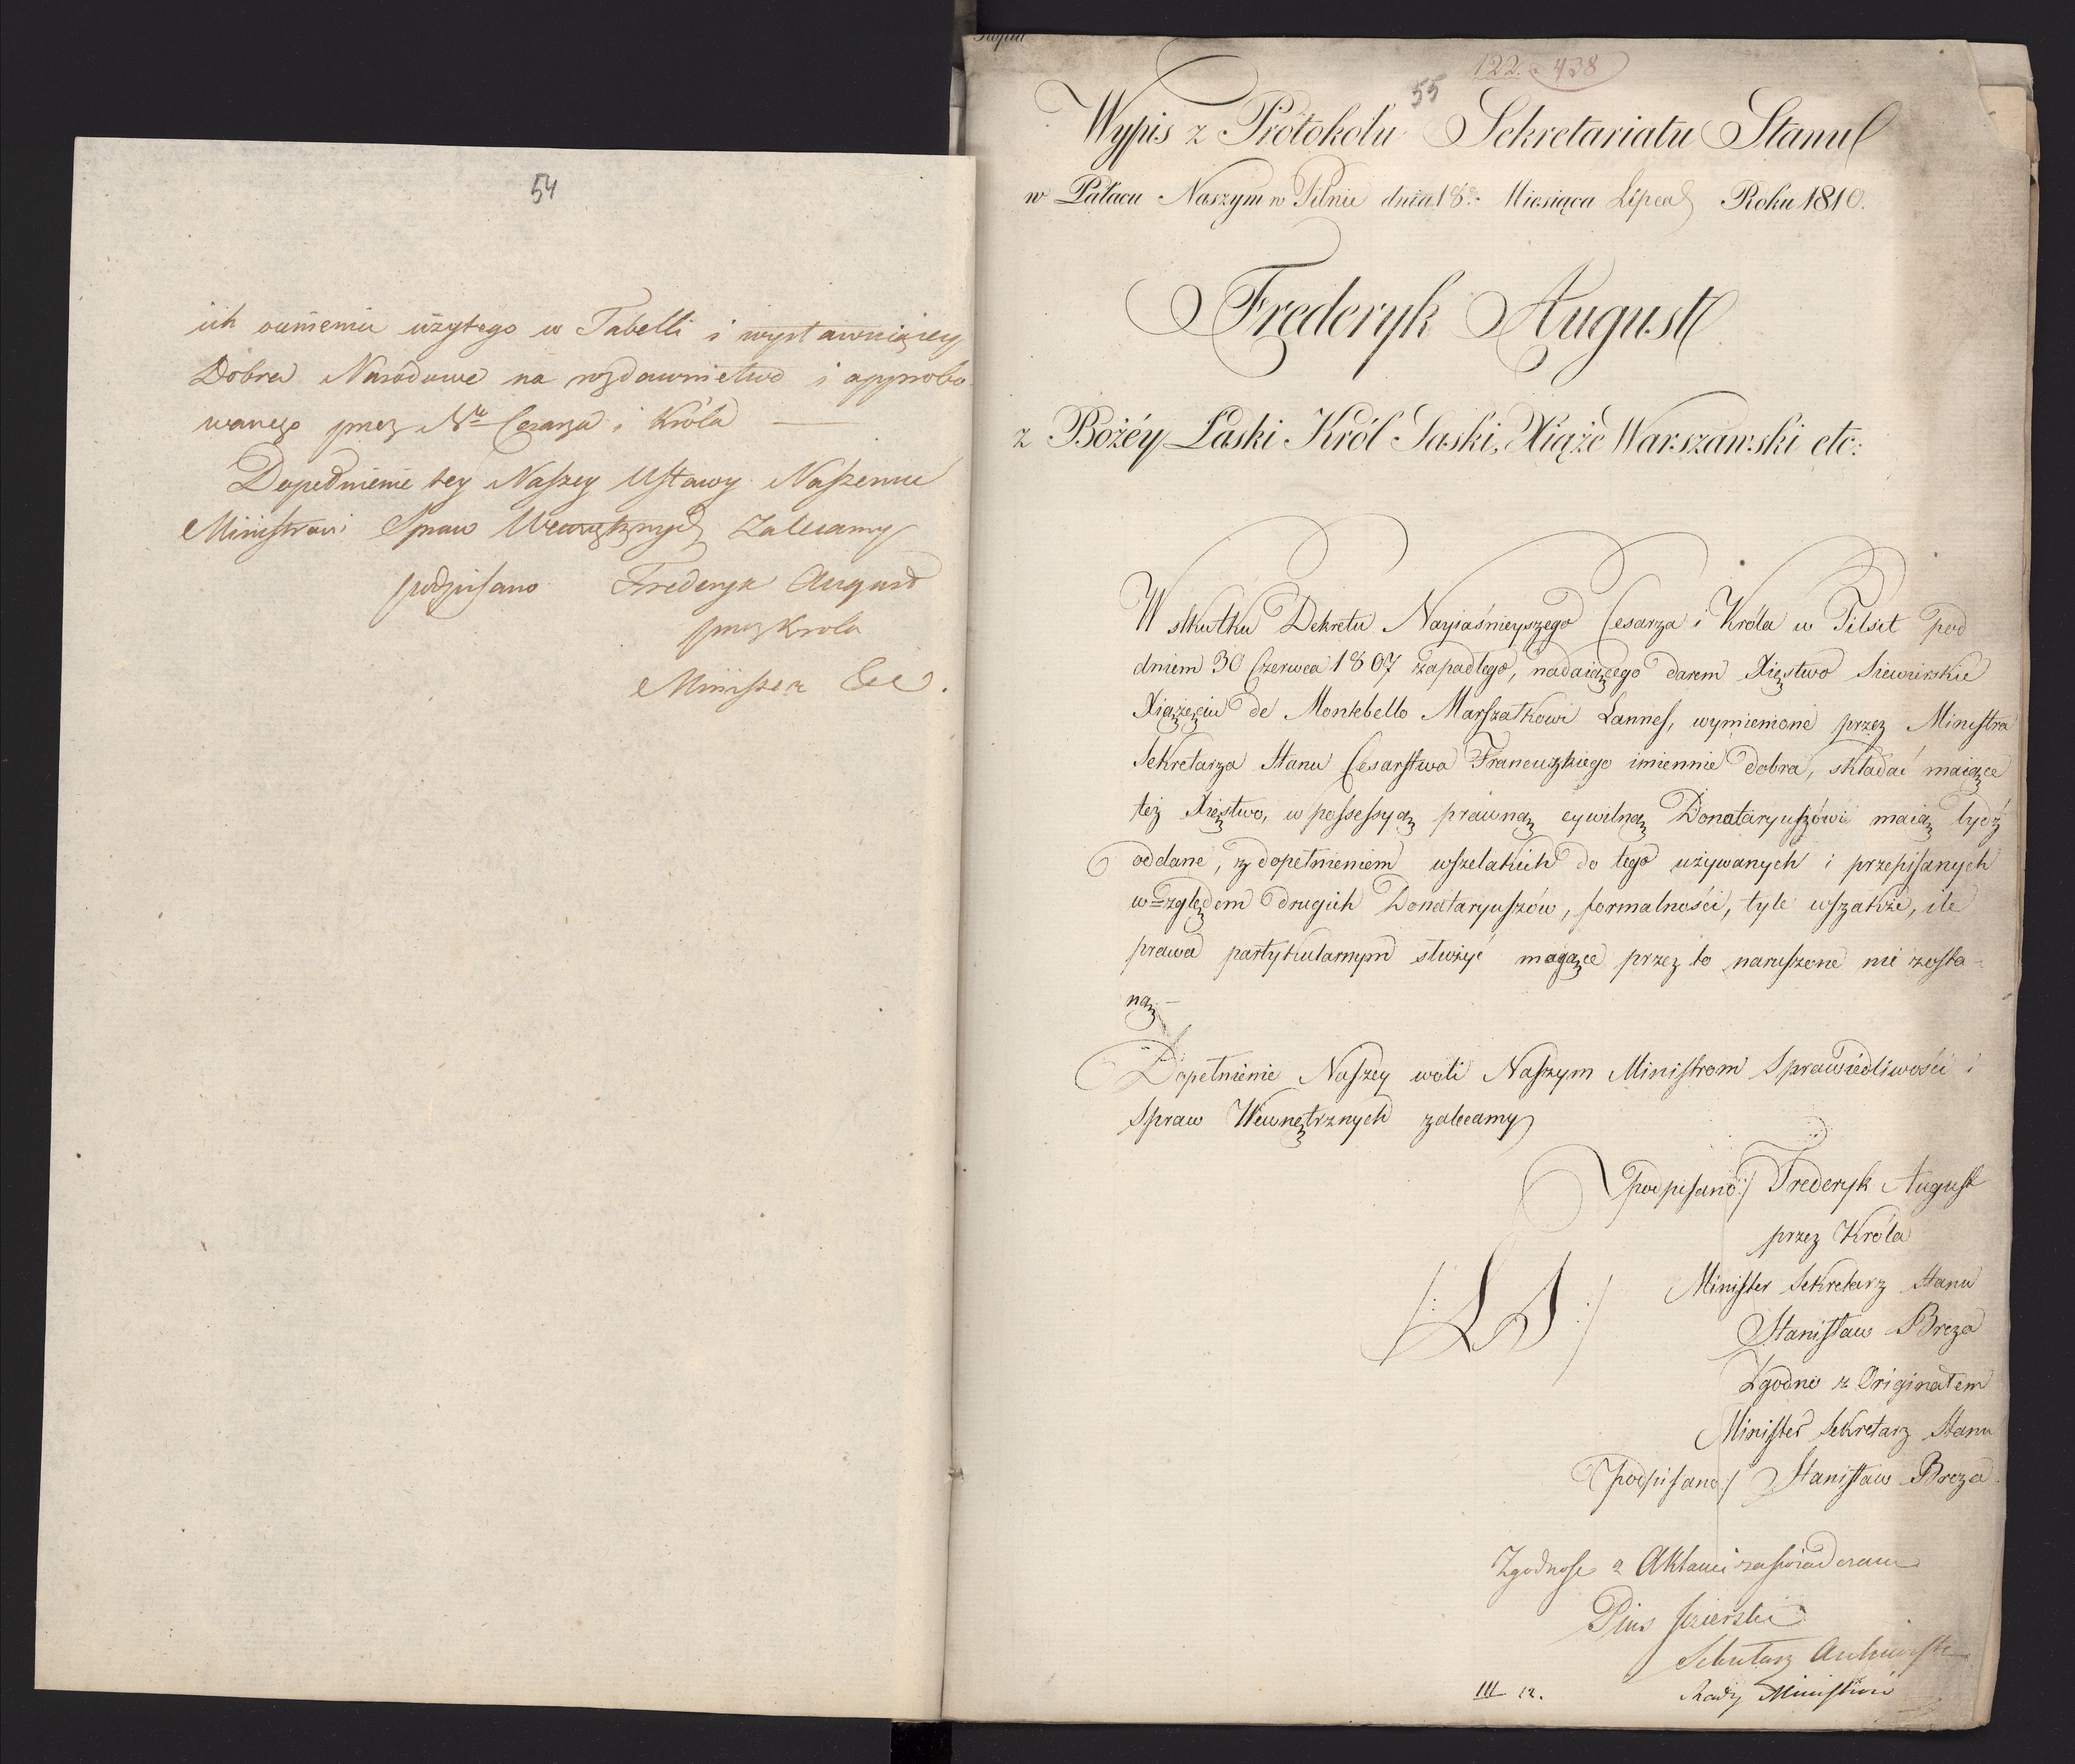 54
ich ocenieniu użytego w Tabelli i wystawuiącey
Dobra Narodowe na rozdawnictwo i approbo
wanego przez Nº Cesarza i Króla —
Dopełnienie tey Naszey Ustawy Naszemu
Ministrowi Spraw Wewnętrznych Zalecamy
podpisano Frederyk August
przez Krola
Minister
122. 438
55
Wypis z Protokołu Sekretariatu Stanu
w Pałacu Naszym w Pilnic dnia 18º Miesiąca Lipca Roku 1810.
Frederyk August
z Bożéy Łaski Król Saski, Xiąże Warszawski etc:
W skutku Dekretu Nayiaśnieyszego Cesarza i Króla w Tilsit pod
dniem 30 Czerwca 1807 zapadłego, nadaiącego darem Xięstwo Siewierskie
Xiążęciu de Montebello Marszałkowi Lannes, wymienione przez Ministra
Sekretarza Stanu Cesarstwa Francuzkiego imiennie dobra, składać maiące
też Xięstwo, w possessyą prawną cywilną Donataryuszowi maią bydź
oddane, z dopełnieniem wszelakich do tego używanych i przepisanych
w=zględem drugich Donataryuszów, formalności, tyle wszakże, ile
prawa partykularnym służyć mogące przez to naruszone nie zosta-
ną.—
Dopełnienie Naszey woli Naszym Ministrom Sprawiedliwości i
Spraw Wewnętrznych zalecamy
podpisano:/ Frederyk August
przez Króla
Minister Sekretarz Stanu
/:LS:/
Stanisław Breza
Zgodno z Originałem
Minister Sekretarz Stanu
podpisano:/ Stanisław Breza
Zgodnosc z Aktami zaświadczam
Pius
Sekretarz
Rady Ministrów
III 12.